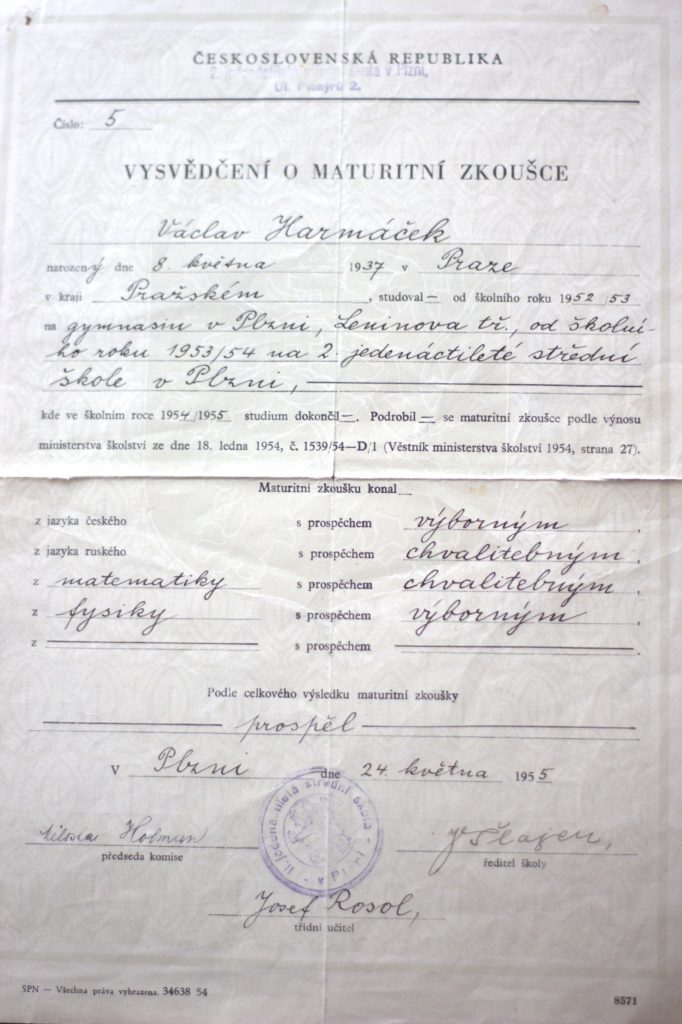 ČESKOSLOVENSKÁ REPUBLIKA
2. jedenáctiletá střední škola v Plzni,
Ul. Pionýrů 2.
Číslo: 5
VYSVĚDČENÍ O MATURITNÍ ZKOUŠCE
Václav Harmáček
narozený dne 8. května 1937 v Praze
v kraji Pražském, studoval – od školního roku 1952/53
na gymnasiu v Plzni, Leninova tř., od školní-
ho roku 1953/54 na 2. jedenáctileté střední
škole v Plzni,
kde ve školním roce 1954/1955 studium dokončil –. Podrobil – se maturitní zkoušce podle výnosu
ministerstva školství ze dne 18. ledna 1954, č. 1539/54—D/1 (Věstník ministerstva školství 1954, strana 27).
Maturitní zkoušku konal
z jazyka českého s prospěchem výborným,
z jazyka ruského s prospěchem chvalitebným,
z matematiky s prospěchem chvalitebným,
z fysiky s prospěchem výborným,
z s prospěchem
Podle celkového výsledku maturitní zkoušky
prospěl
V Plzni dne 24. května 1955
II. jedenáctiletá střední škola
v Plzni
Miloslav Holman
předseda komise
ředitel školy
Josef Rosol,
třídní učitel
SPN — Všechna práva vyhrazena. 34638 54
8571